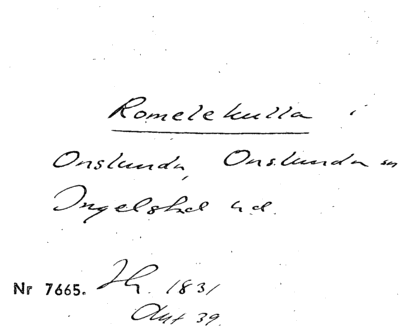 Romelekulla i
Onslunda, Onslunda sn
Ingelstad hd.
Nr 7665. Th. 1831
Akt 39.